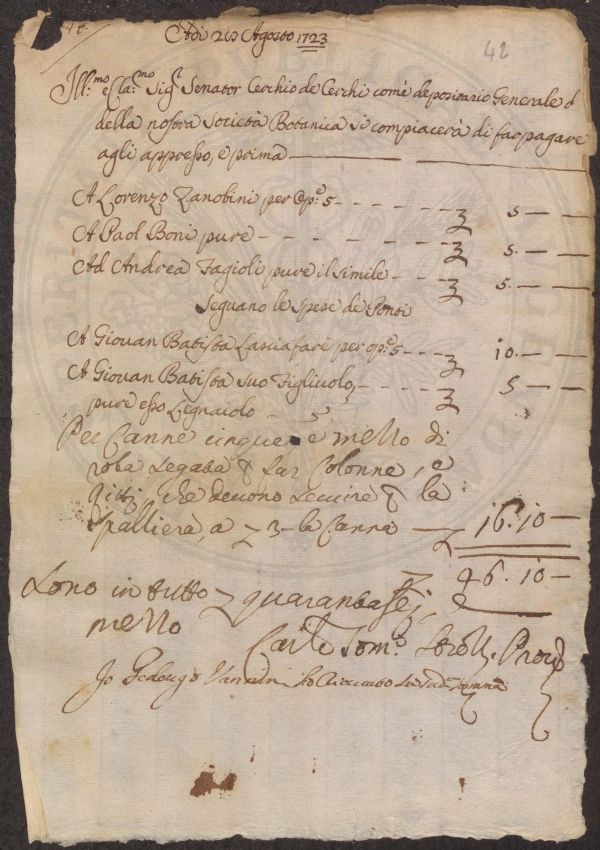 Adì 20 Agosto 1723
42
Ill:mo e Cla:mo Sig:r Senator Cerchio de Cerchi come depositario Generale
della nostra Società Botanica si compiacerà di far pagare
agli appresso, e prima
A Lorenzo Zanobini per op:e 5 5
A Paol Boni pure 5
Ad Andrea Fagioli pure il simile 5
Seguano le Spese de
A Giovan Batista Lascia fare per op:e 5 10
A Giovan Batista suo Figliuolo 5
pure esso Legnaiolo 5
Per Canne cinque e mezzo di
roba Legata
Colonne, e
che devono servire la
Spalliera, a 3 la Canna 16.10
46.10
Sono in tutto quarantasei, e
mezzo
Tom:o Prov:e
Io Vannini